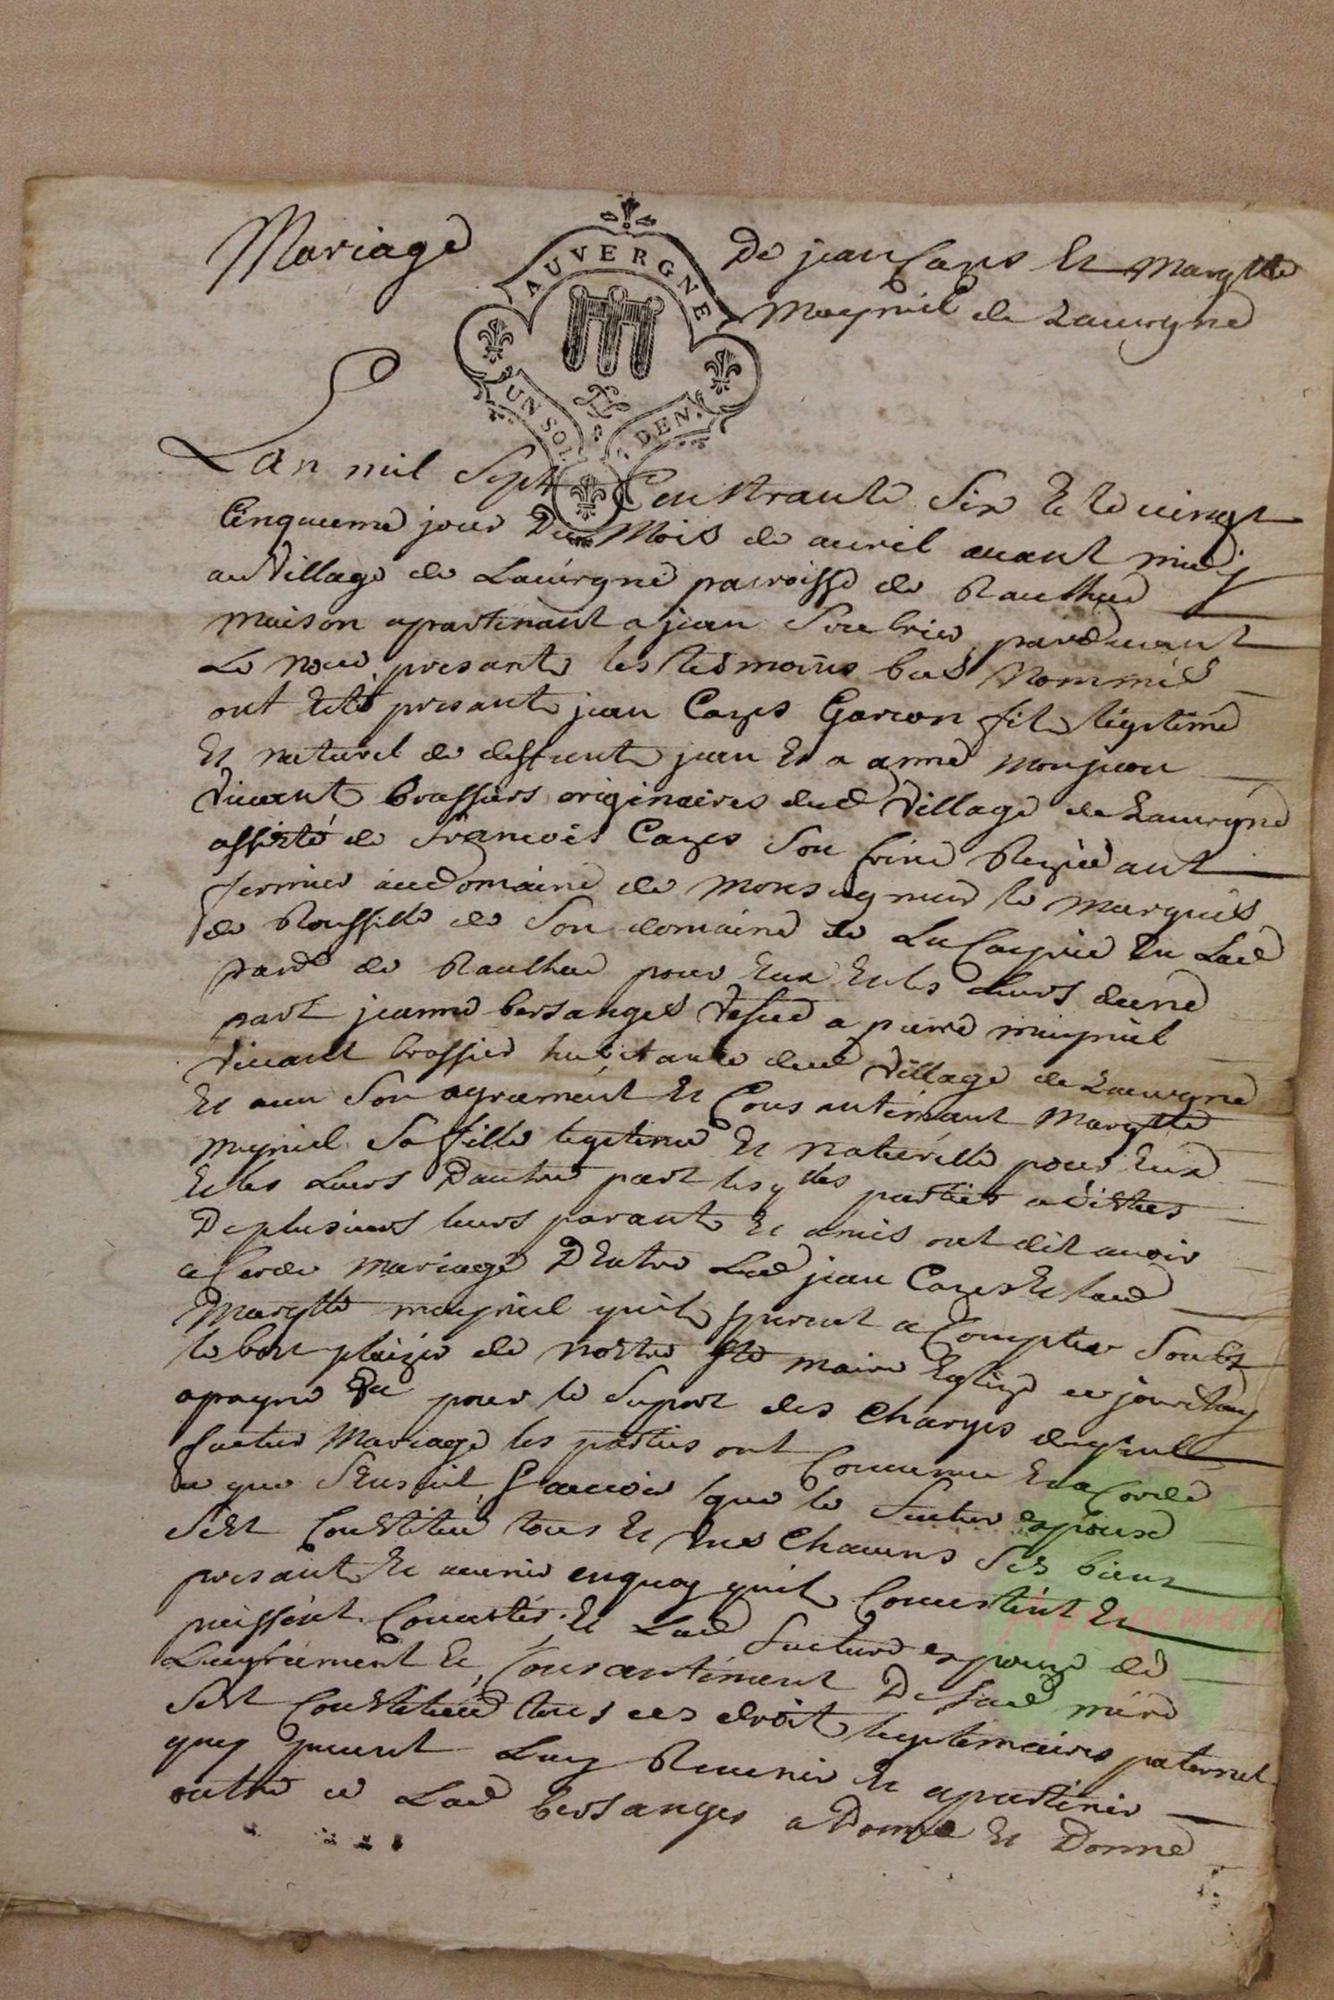 Mariage
De jean Cazes Et Margtte
Meyniel de Lauvergne
AUVERGNE
UN SOL
DEN.
Lan mil Sept Cent trante Six Et le vingt
Cinquieme jour Du Mois de avril avant midy
au Village de Lauvergne parroisse de Raulhac
maison apartenant a jean Soubrier pardevant
Le nore presants les tesmoins bas Nommés
ont Esté presants jean Cazes Garcon fils légitime
Et naturel de deffunts jean Et a anne
vivants brassiers originaires dud Village de Lauvergne
assisté de francois Cazes Son frere Rezidant
fermier au Domaine de Monseigneur le Marquis
de Roussille de Son domaine de La En Lad
parr de Raulhac pour Eux Et les Leurs dune
part jeanne bersanges vefue a pierre meyniel
vivant brassier habitante dud Village de Lauvergne
Et avec Son agrement Et Consantement Margtte
meyniel Sa fille legitime Et naturelle pour Eux
Et les Leurs Dautre part lesqlles parties
De plusieurs leurs parants Et amis ont dit avoir
acordé Mariage Dentre Led jean Cazes Et lad
Margtte meyniel quils a Compter Soubs
le bon plaizir de nostre Ste maire Eglize
apayne &a pour le Suport des Charges dudit
futur Mariage les parties ont Convenu Et acordé
Ce que Sensuit Scauoir que le futur Espoux
Sest Constitué tous Et uns Chacuns Ses biens
presants Et auenir enquoy quils Concistent Et
puissent Concister Et Lad future Espouze de
Lagrement Et Consantement De Sad mère
Sest Constituée tous ces droits legitimaires paternels
quy peuvent Luy Reuenir Et apartenir
outre ce Lad bersanges a Donné Et Donne